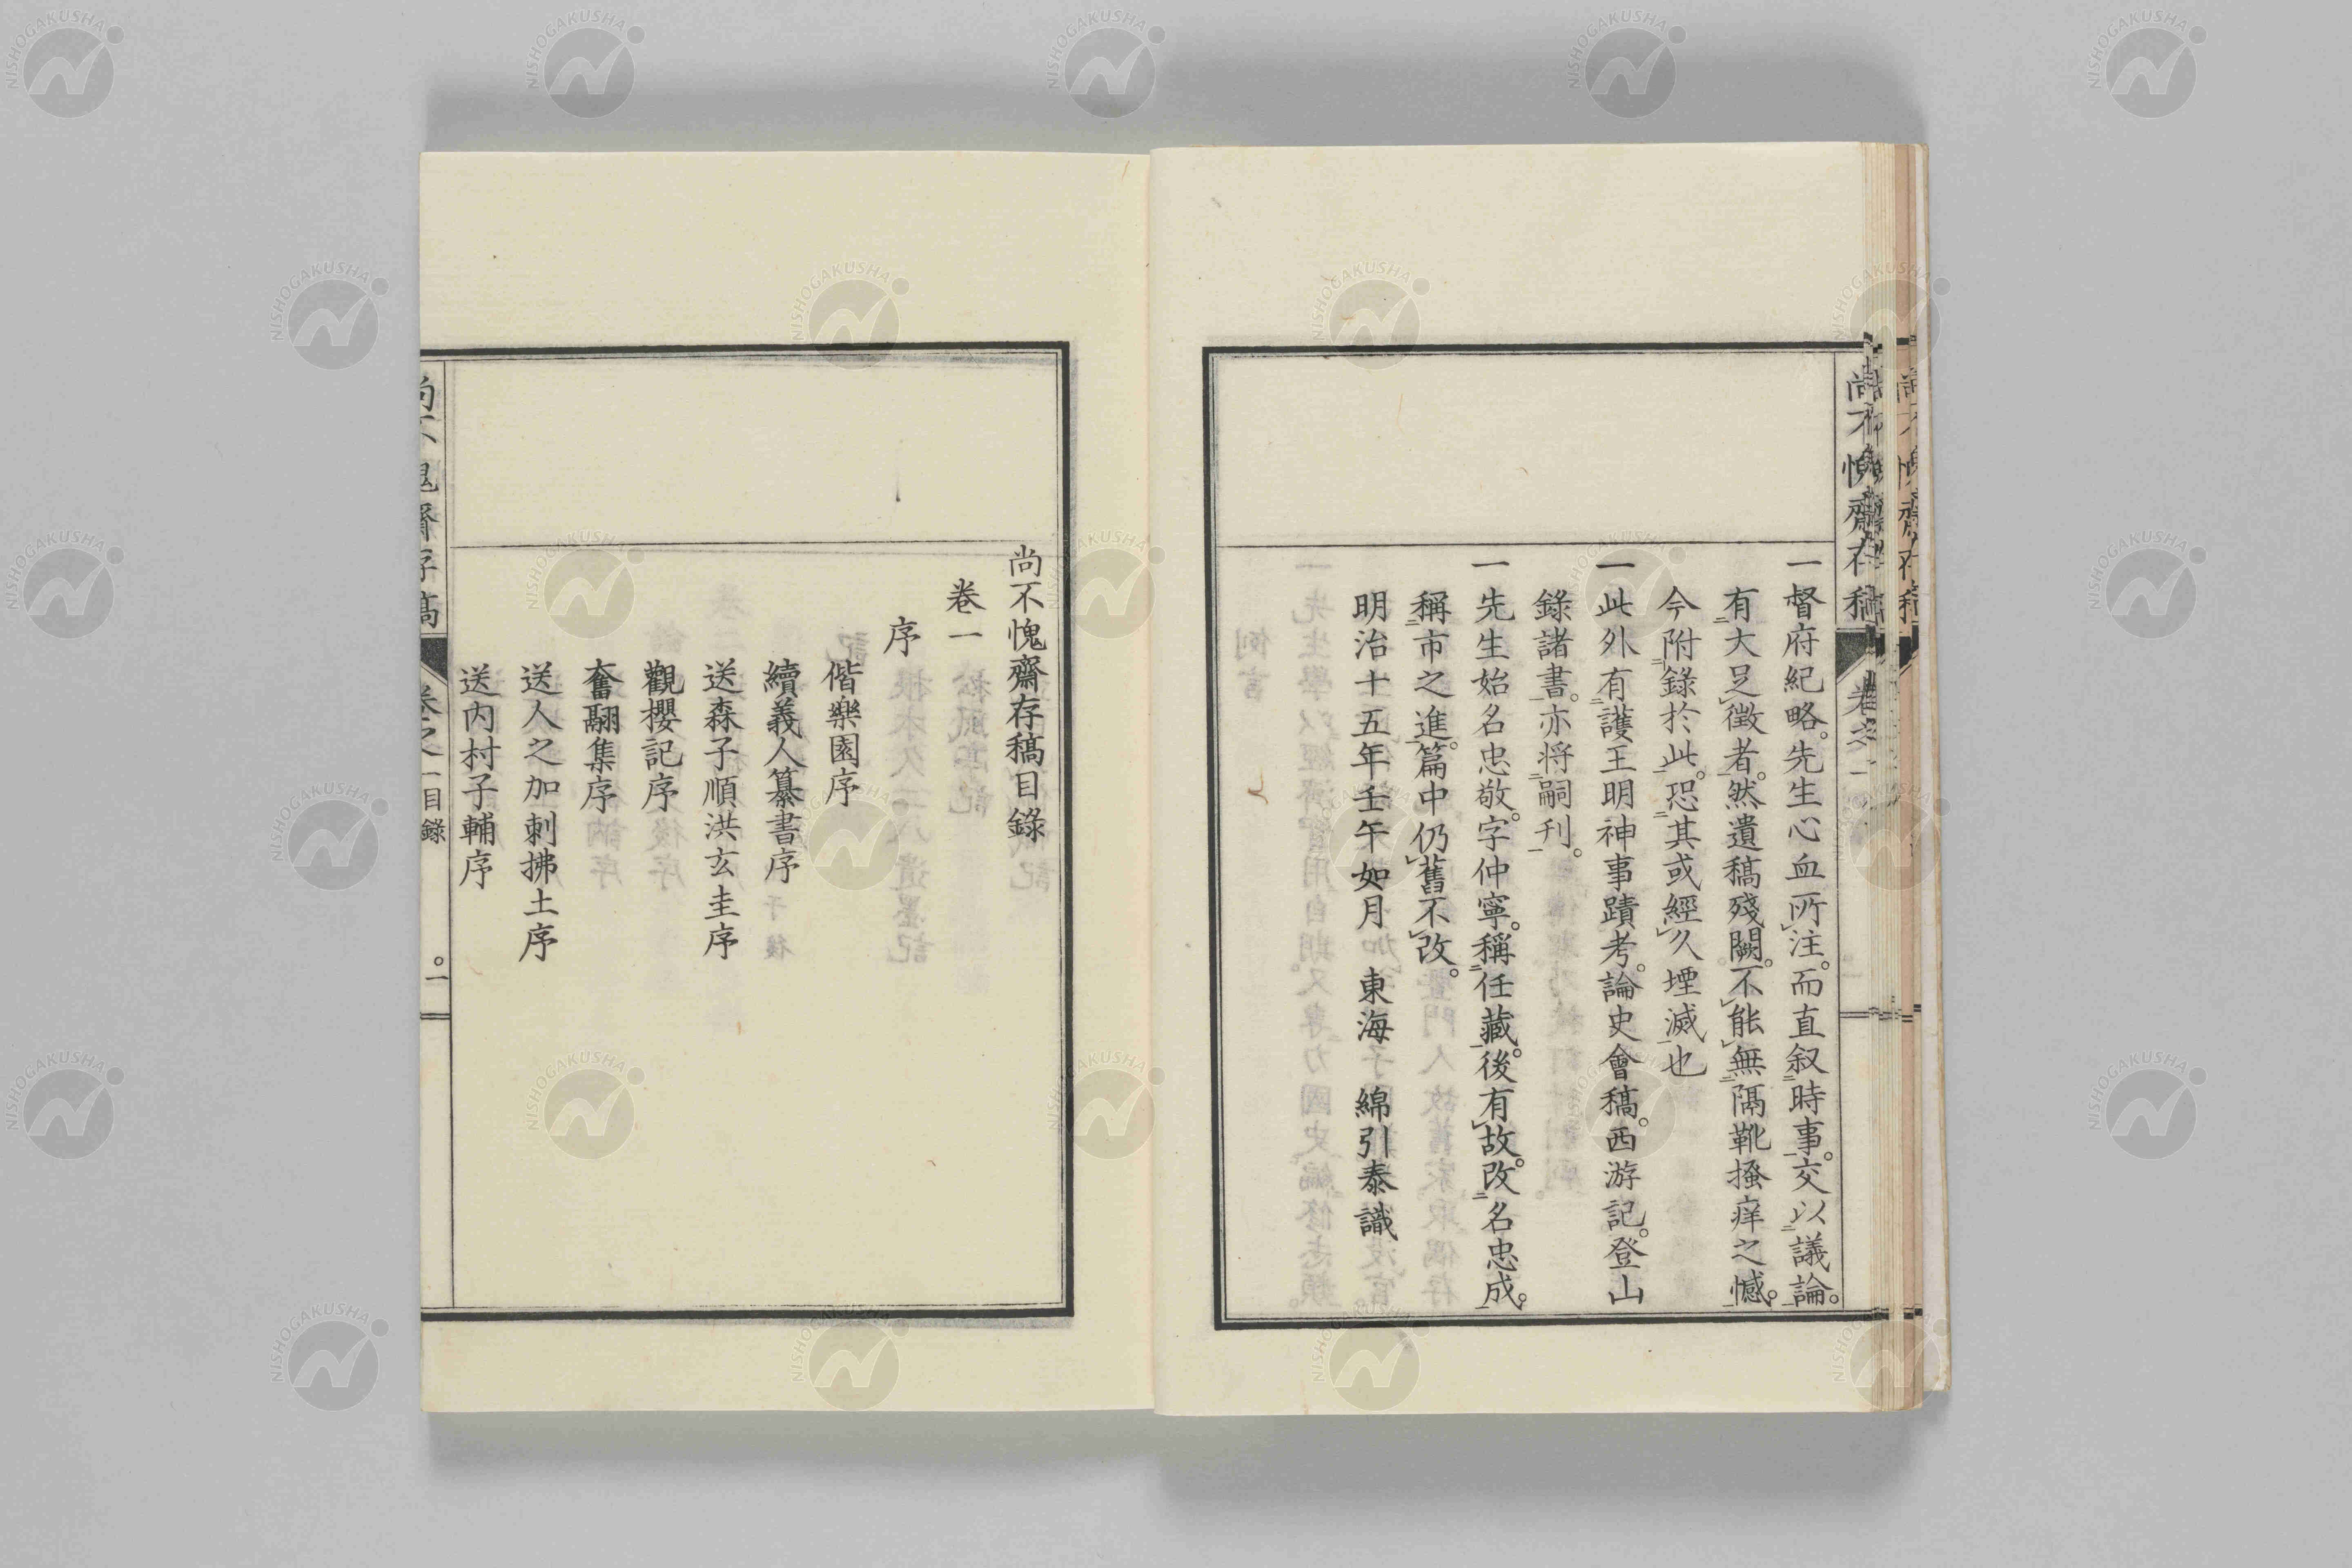 一督府紀略。先生心血所注。而直叙時事。交以議論。
有大足徵者。然遺稿殘闕。不能無隔靴搔痒之憾。
今附錄於此。恐其或經久堙滅也
一此外有護王明神事蹟考。論史會稿。西游記。登山
錄諸書。亦將嗣刊。
一先生始名忠敬。字仲寧。稱任藏。後有故。改名忠成。
稱市之進。篇中仍舊不改。
明治十五年壬午如月 東海 綿引泰識
尚不愧齋存稿目錄
卷一
序
偕樂園序
續義人纂書序
送森子順洪玄圭序
觀櫻記序
奮翮集序
送人之加刺拂土序
送内村子輔序
尚不愧齋存稿
卷之一目錄
一
NISHOGAKUSHA